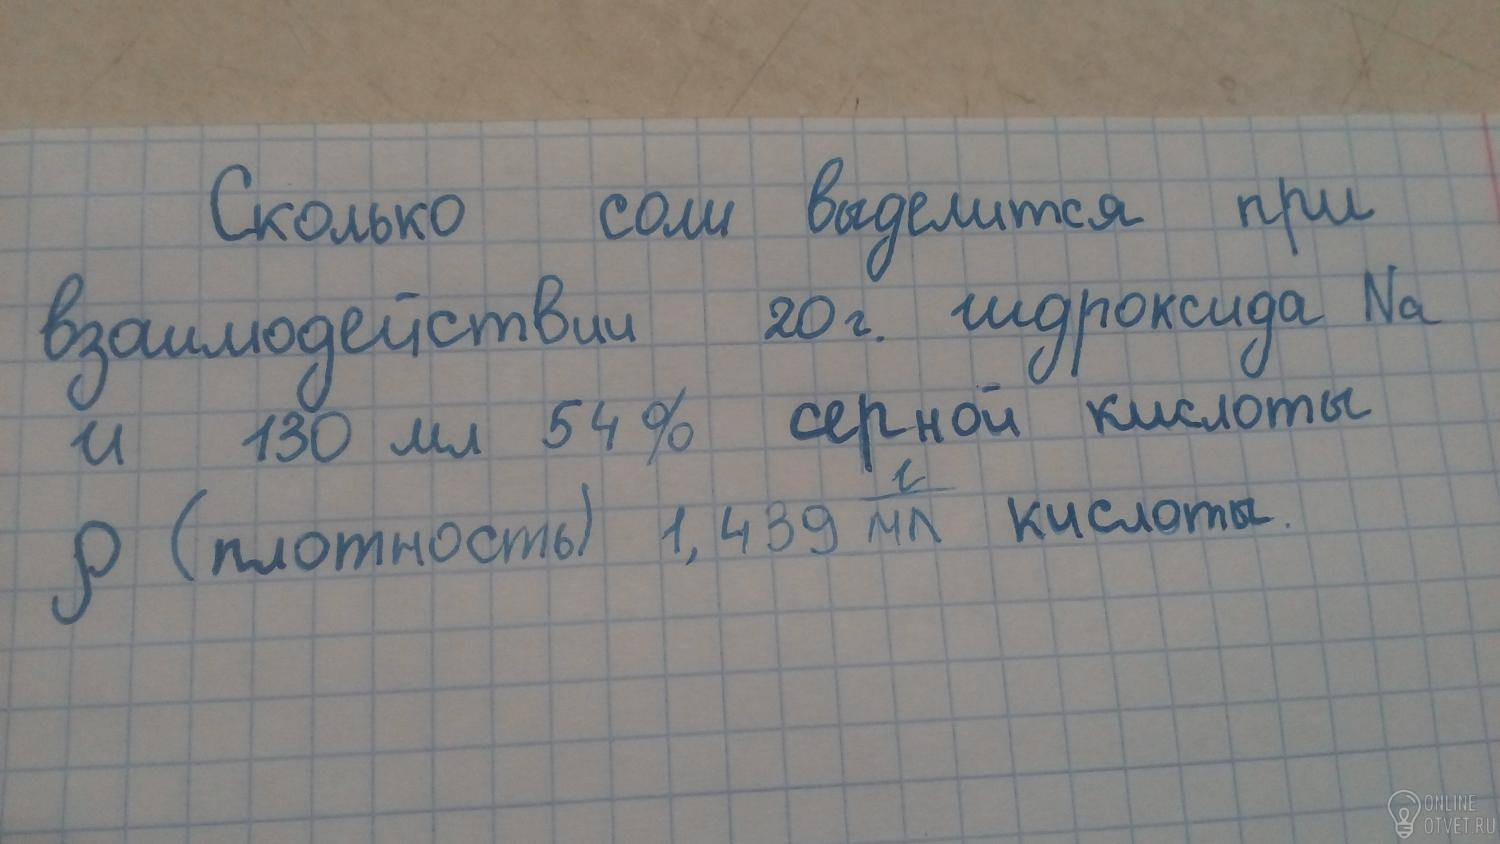 Сколько соли выделится при
взаимодействии 20 г. гидроксида Na
и 130 мл 54% серной кислоты
ρ (плотность) 1,439 г/мл кислоты.
ONLINE
OTVET.RU